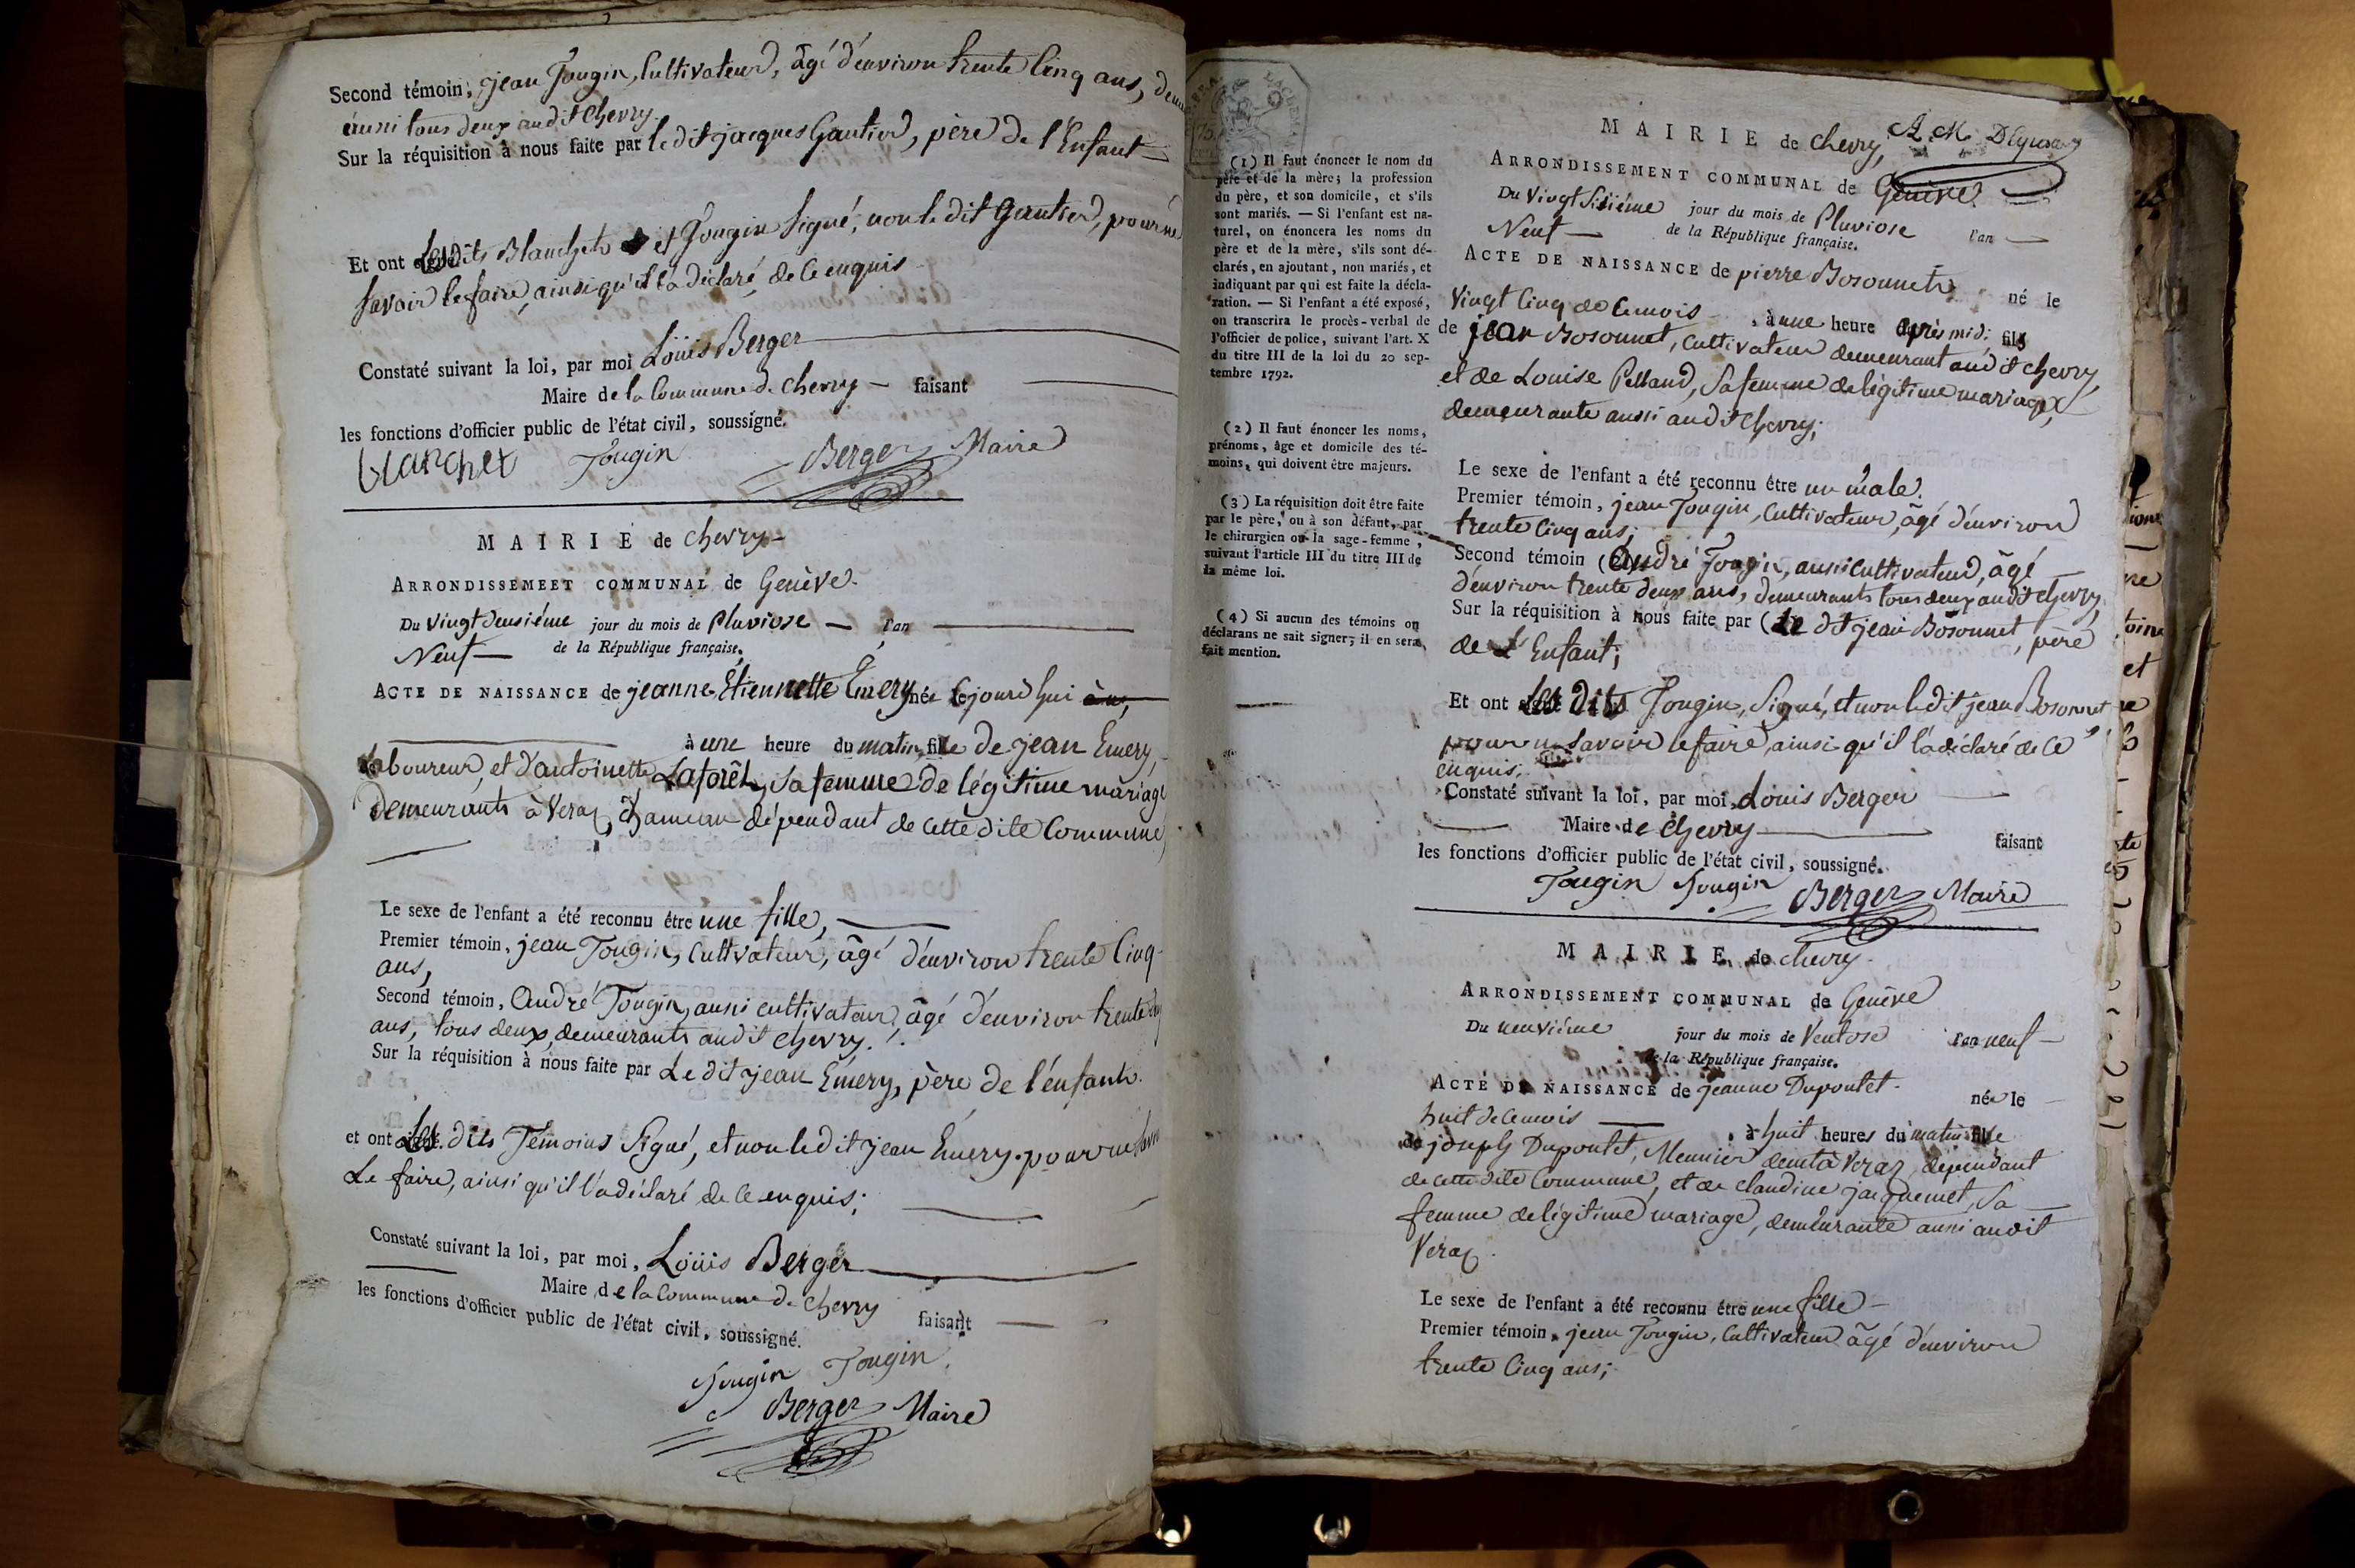 Second témoin, jean Jougin, Cultivateur, âgé d'environ trente Cinq ans,
aussi tous deux audit Chevry.
Sur la réquisition à nous faite par le dit jacques Gautier, père de l'Enfant
Et ont Lesdits Blanchet et Jougin Signé, non le dit Gautier, pour ne
Savoir le faire, ainsi qu'il l'a déclaré de ce enquis
Constaté suivant la loi, par moi Loüis Berger
Maire de la Commune de Chevry — faisant
les fonctions d'officier public de l'état civil, soussigné.
blanchet Jougin Berger Maire
MAIRIE de Chevry
ARRONDISSEMEET COMMUNAL de Genève.
Du Vingt deusiéme jour du mois de Pluviose — l'an
Neuf — de la République française.
ACTE DE NAISSANCE de jeanne Etiennette Emery née cejourd'hui
à une heure du matin fille de jean Emery,
Laboureur, et d'antoinette Laforêt, sa femme de légitime mariage
demeurants à Veraz, hameau dépendant de cette dite Commune,
Le sexe de l'enfant a été reconnu être une fille,
Premier témoin, jean Jougin, Cultivateur, âgé d'environ trente Cinq
ans,
Second témoin, André Jougin, aussi cultivateur, âgé d'environ trente
ans, tous deux demeurants audit Chevry.
Sur la réquisition à nous faite par Le dit jean Emery, père de l'enfant.
et ont Les dits Témoins Signé, et non le dit jean Emery pour ne
Le faire, ainsi qu'il l'a déclaré de ce enquis;
Constaté suivant la loi, par moi, Loüis Berger
Maire de la Commune de Chevry faisant
les fonctions d'officier public de l'état civil, soussigné.
Jougin Jougin
Berger Maire
(1) Il faut énoncer le nom du
père et de la mère; la profession
du père, et son domicile, et s'ils
sont mariés. — Si l'enfant est na-
turel, on énoncera les noms du
père et de la mère, s'ils sont dé-
clarés, en ajoutant, non mariés, et
indiquant par qui est faite la décla-
ration. — Si l'enfant a été exposé,
on transcrira le procès-verbal de
l'officier de police, suivant l'art. X
du titre III de la loi du 20 sep-
tembre 1792.
(2) Il faut énoncer les noms,
prénoms, âge et domicile des té-
moins, qui doivent être majeurs.
(3) La réquisition doit être faite
par le père, ou à son défaut, par
le chirurgien ou la sage-femme,
suivant l'article III du titre III de
la même loi.
(4) Si aucun des témoins ou
déclarans ne sait signer, il en sera
fait mention.
MAIRIE de Chevry,
ARRONDISSEMENT COMMUNAL de Genève
Du Vingt Sixiéme jour du mois de Pluviose l'an
Neuf — de la République française.
ACTE DE NAISSANCE de pierre Bosonnet né le
Vingt Cinq de Ce mois, à une heure après midi, fils
de jean Bosonnet, Cultivateur demeurant audit Chevry,
et de Louise Pelland, sa femme de légitime mariage,
demeurante aussi audit Chevry;
Le sexe de l'enfant a été reconnu être un mâle.
Premier témoin, jean Jougin, Cultivateur, âgé d'environ
trente Cinq ans;
Second témoin (André Jougin, aussi Cultivateur, âgé
d'environ trente deux ans, demeurants tous deux audit Chevry,
Sur la réquisition à nous faite par (Le dit jean Bosonnet, père
de L'Enfant;
Et ont Les dits Jougin, Signé, et non le dit jean Bosonnet
pour ne Savoir le faire, ainsi qu'il l'a déclaré de ce
enquis;
Constaté suivant la loi, par moi, Louis Berger
Maire de Chevry faisant
les fonctions d'officier public de l'état civil, soussigné.
Jougin Jougin Berger Maire
MAIRIE de Chevry.
ARRONDISSEMENT COMMUNAL de Genève
Du neuviéme jour du mois de Ventose l'an neuf
de la République française.
ACTE DE NAISSANCE de jeanne Dupontet née le
huit de Ce mois à huit heures du matin fille
de joseph Dupontet, Meunier demt à Veraz, dépendant
de cette dite Commune, et de Claudine jacquemet, Sa
femme de légitime mariage, demeurante aussi audit
Veraz.
Le sexe de l'enfant a été reconnu être une fille
Premier témoin, jean Jougin, Cultivateur âgé d'environ
trente Cinq ans;